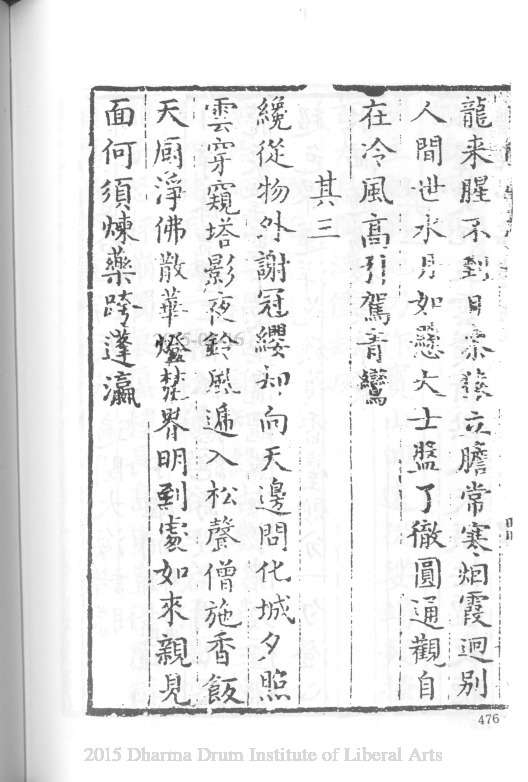 龍来腥不到日
立膽常寒烟霞迥别
人間世水月如懸大士盤了徹圓通觀自
在冷風高引駕青鸞
其三
纔從物外謝冠纓却向天邊問化城夕照
雲穿窺塔影夜鈴風遞入松聲僧施香飯
天厨淨佛散華燈梵界明到處如來親見
面何須煉藥跨蓬瀛
476
2015 Dharma Drum Institute of Liberal Arts